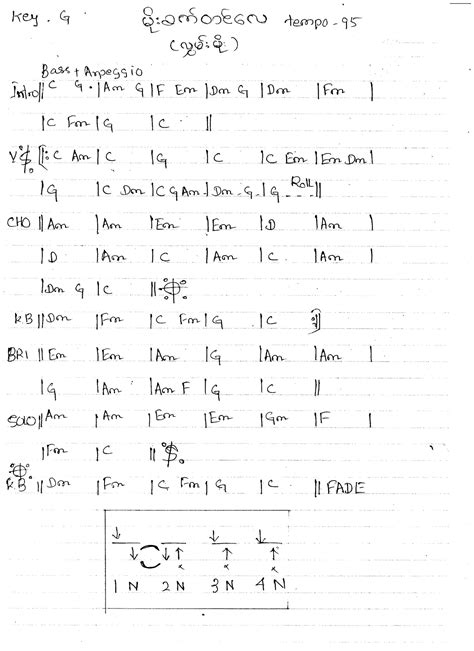 Key. G မိုးခက်တင်လေ tempo - 95
(လွှမ်းမို)
Bass + Arpeggio
Intro || C G . | Am G | F Em | Dm G | Dm | Fm |
| C Fm | G | C ||
V 𝄋 ||: C Am | C | G | C | C Em | Em Dm |
| G | C Dm | C G Am | Dm - G | G - Roll - ||
CHO || Am | Am | Em | Em | D | Am |
| D | Am | C | Am | C | Am |
| Dm G | C || 𝄌
K.B || Dm | Fm | C Fm | G | C :||
BRI || Em | Em | Am | G | Am | Am |
| G | Am | Am F | G | C ||
SOLO || Am | Am | Em | Em | Gm | F |
| Fm | C || 𝄋
𝄌
K.B || Dm | Fm | C Fm | G | C || FADE
↓ ↓ ↓
↓ ↓ ↑ ↑ ↑
x x x
1 N 2 N 3 N 4 N